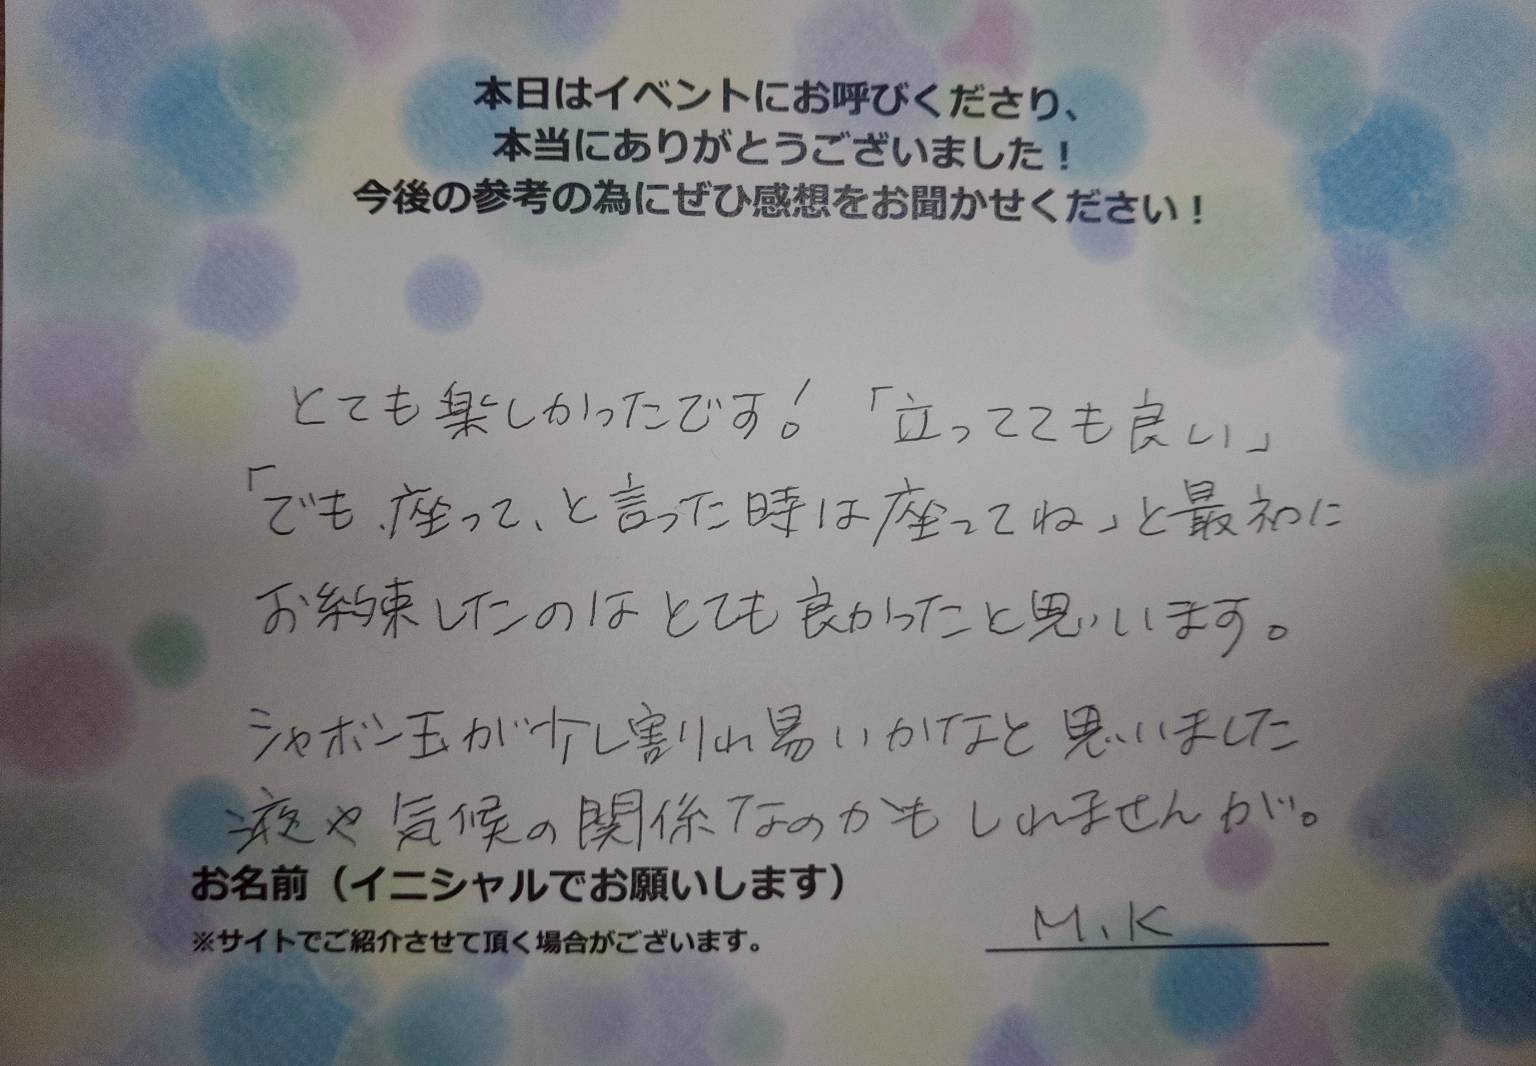 本日はイベントにお呼びくださり、
本当にありがとうございました！
今後の参考の為にぜひ感想をお聞かせください！
とても楽しかったです！「立ってても良い」
「でも、座って、と言った時は座ってね」と最初に
お約束したのはとても良かったと思います。
シャボン玉が少し割りれ易いかなと思いました
液や気候の関係なのかもしれませんが。
お名前（イニシャルでお願いします）
※サイトでご紹介させて頂く場合がございます。
M.K